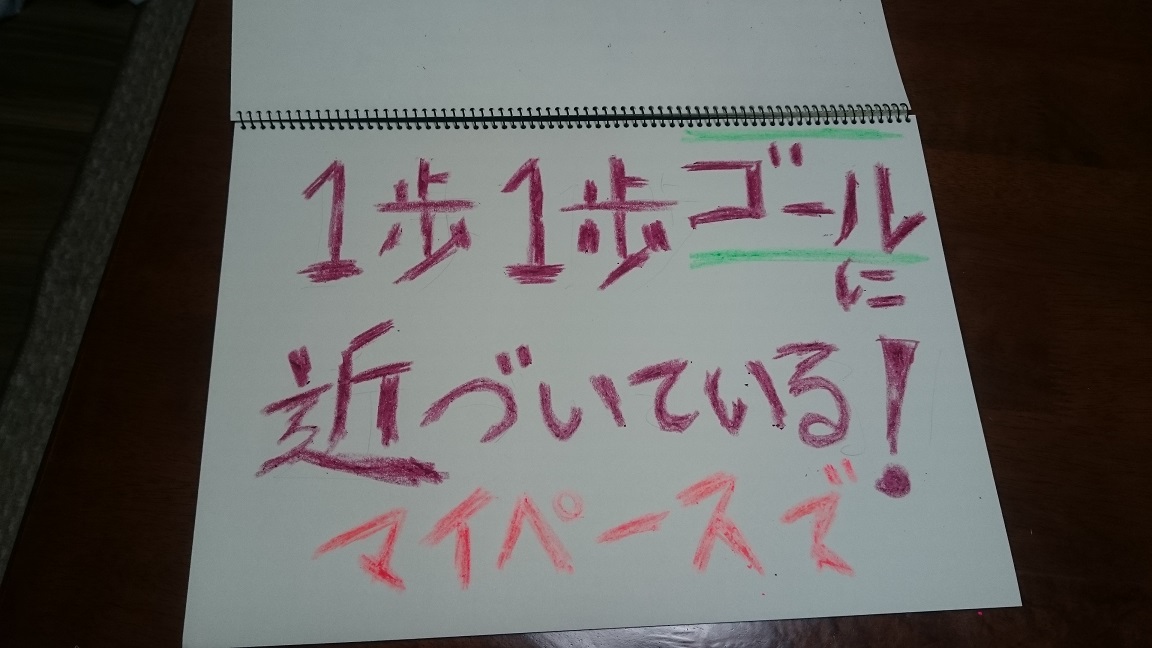 1歩1歩ゴール
に
近づいている!
マイペースで